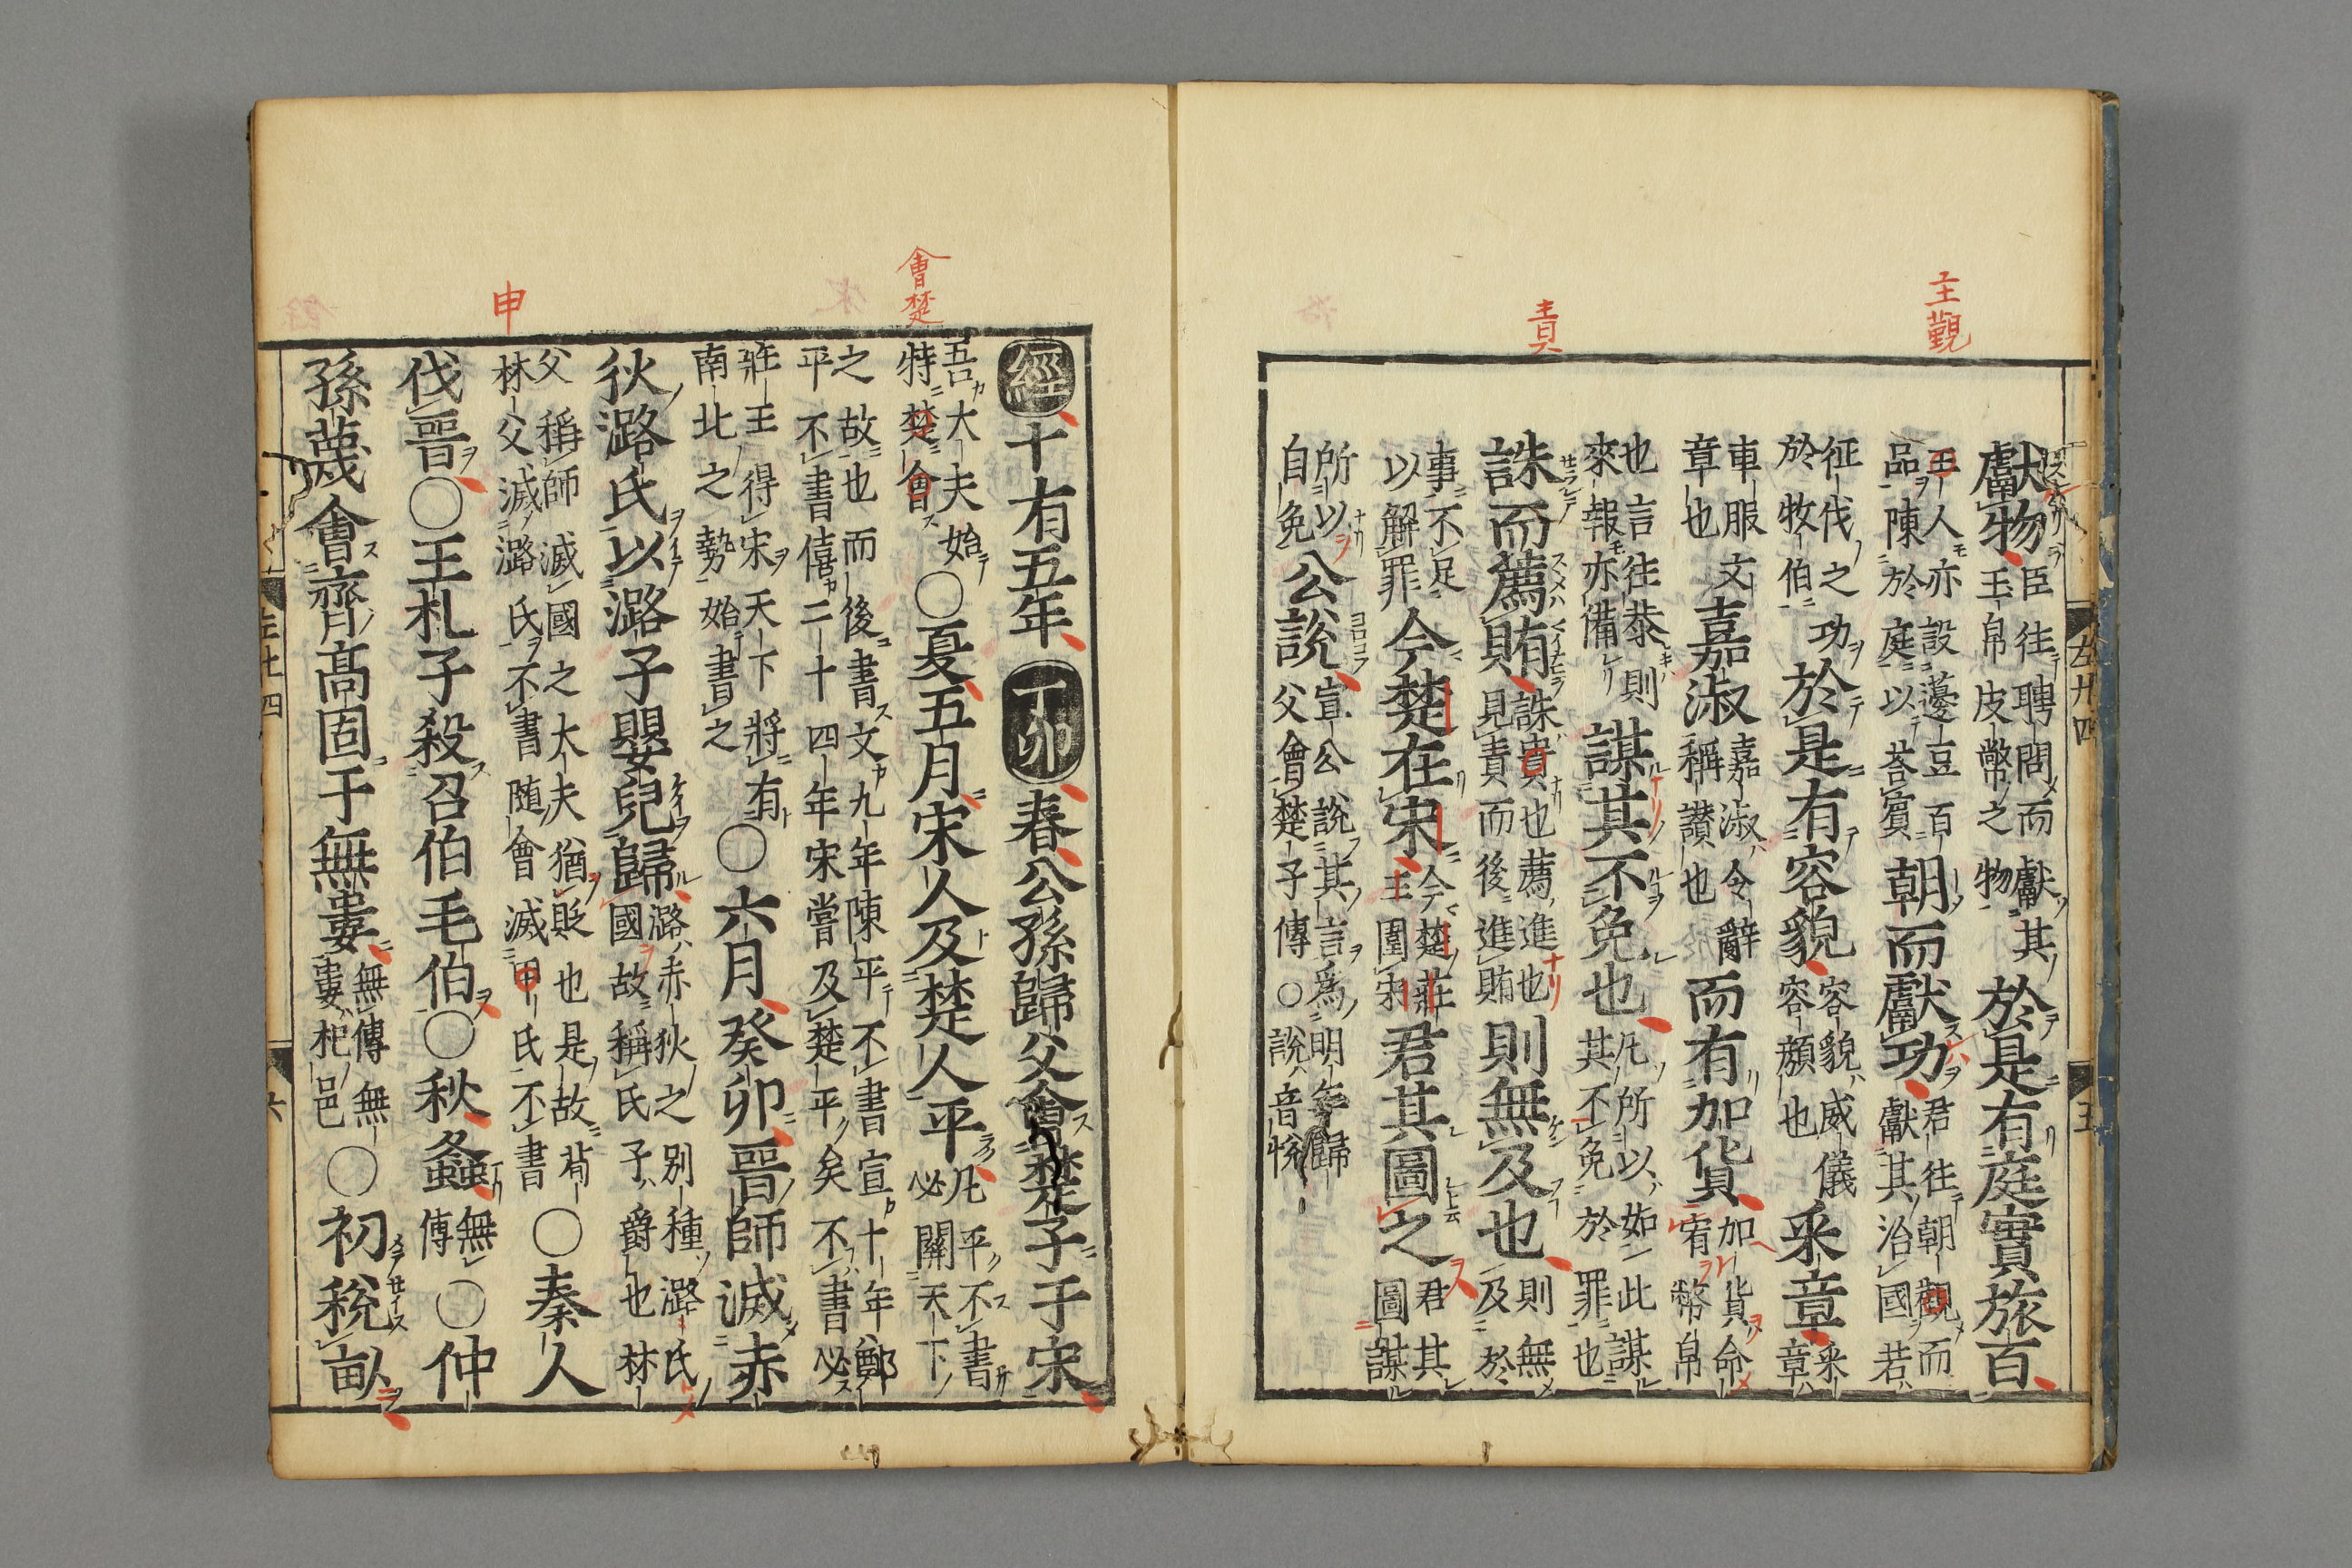 主觀
責
獻物臣往聘問而獻其玉帛皮幣之物於是有庭實旅百
主人亦設籩豆百品陳於庭以荅賓朝而獻功君往朝觀而獻其治國若
征伐之功於牧伯於是有容貌容貌威儀容顔也采章采章
車服文章也嘉淑嘉淑令辭稱讃也而有加貨加貨命宥幣帛
也言往恭則來報亦備謀其不免也凡所以如此謀其不免於罪也
誅而薦賄誅責也薦進也見責而後進賄則無及也則無及於
事不足以解罪今楚在宋今楚莊王圍宋君其圖之君其圖謀
所以自免公說宣公說其言爲明年歸父會楚子傳○說音悅
左廿四
五
會楚
申
經十有五年丁卯春公孫歸父會楚子于宋
吾大夫始特會楚○夏五月宋人及楚人平凡平不書必關天下
之故也而後書文九年陳平不書宣十年鄭平不書僖二十四年宋嘗及楚平矣不書必
莊王得宋天下將有南北之勢始書之○六月癸卯晉師滅赤
狄潞氏以潞子嬰兒歸潞赤狄之别種潞氏國故稱氏子爵也林
父稱師滅國之大夫猶貶也是故荀林父滅潞氏不書隨會滅甲氏不書○秦人
伐晉○王札子殺召伯毛伯○秋螽無傳○仲
孫蔑會齊高固于無婁無傳無婁杞邑○初稅畝
左廿四
六